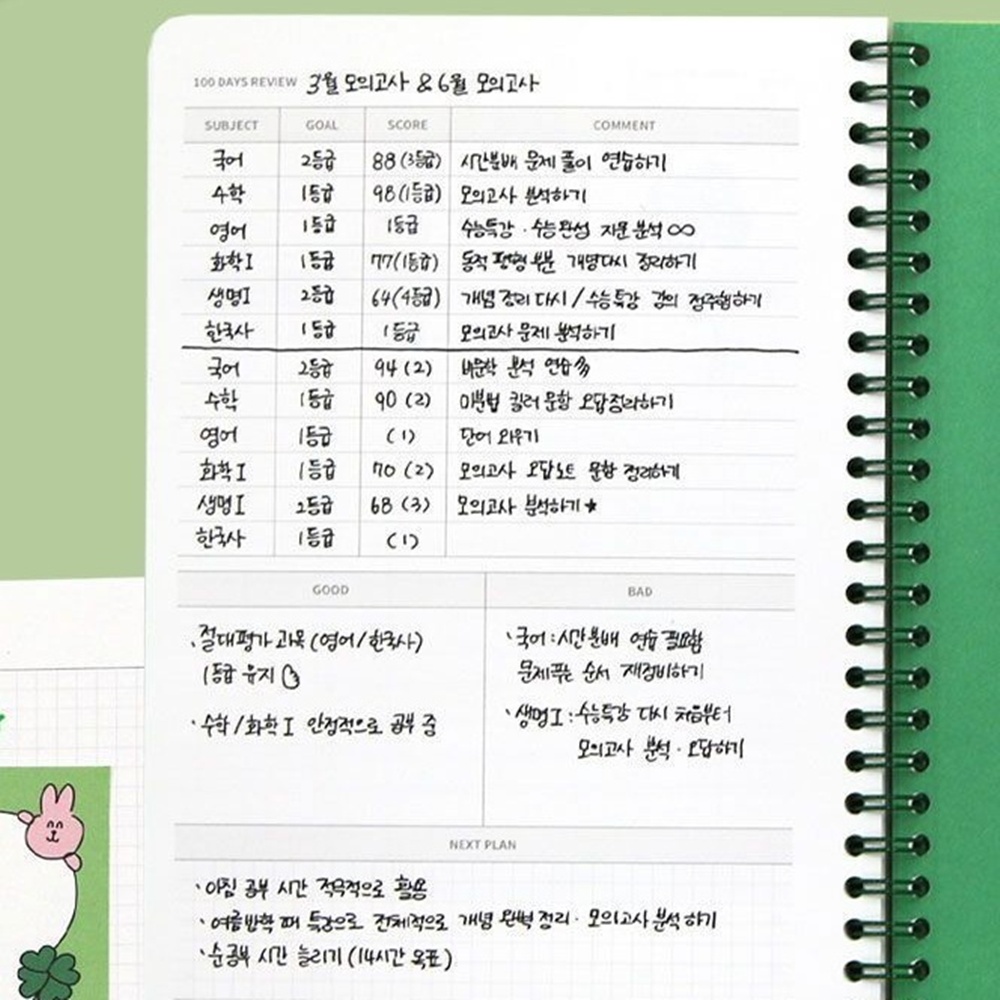 100 DAYS REVIEW 3월 모의고사 & 6월 모의고사
SUBJECT GOAL SCORE COMMENT
국어 2등급 88(3등급) 시간분배 문제 풀이 연습하기
수학 1등급 98(1등급) 모의고사 분석하기
영어 1등급 1등급 수능특강·수능완성 지문 분석 ∞
화학I 1등급 77(1등급) 동적 평형 부분 개념다시 정리하기
생명I 2등급 64(4등급) 개념 정리 다시 / 수능특강 강의 정주행하기
한국사 1등급 1등급 모의고사 문제 분석하기
국어 2등급 94 (2) 비문학 분석 연습
수학 1등급 90 (2) 미분법 킬러 문항 오답정리하기
영어 1등급 (1) 단어 외우기
화학I 1등급 70 (2) 모의고사 오답노트 문항 정리하기
생명I 2등급 68 (3) 모의고사 분석하기★
한국사 1등급 (1)
GOOD BAD
·절대평가 과목 (영어/한국사) ·국어:시간분배 연습 필요함
1등급 유지 문제푸는 순서 재정비하기
·수학/화학I 안정적으로 공부 중 ·생명I:수능특강 다시 처음부터
모의고사 분석·오답하기
NEXT PLAN
·아침 공부 시간 적극적으로 활용
·여름방학 때 특강으로 전체적으로 개념 완벽 정리·모의고사 분석 하기
·순공부 시간 늘리기 (14시간 목표)